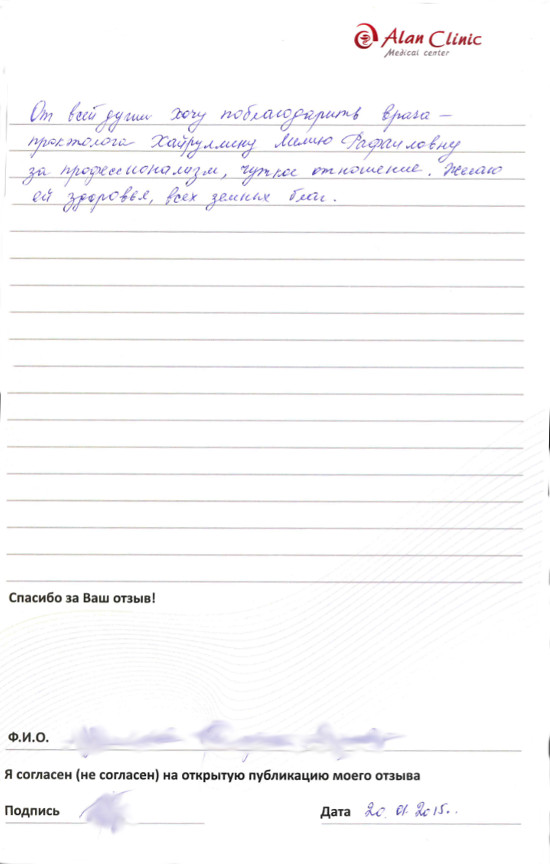 Alan Clinic
Medical center
От всей души хочу поблагодарить врача –
проктолога Хайруллину Лилию Рафаиловну
за профессионализм, чуткое отношение. Желаю
ей здоровья, всех земных благ.
Спасибо за Ваш отзыв!
Ф.И.О.
Я согласен (не согласен) на открытую публикацию моего отзыва
Подпись Дата 20.01.2015..